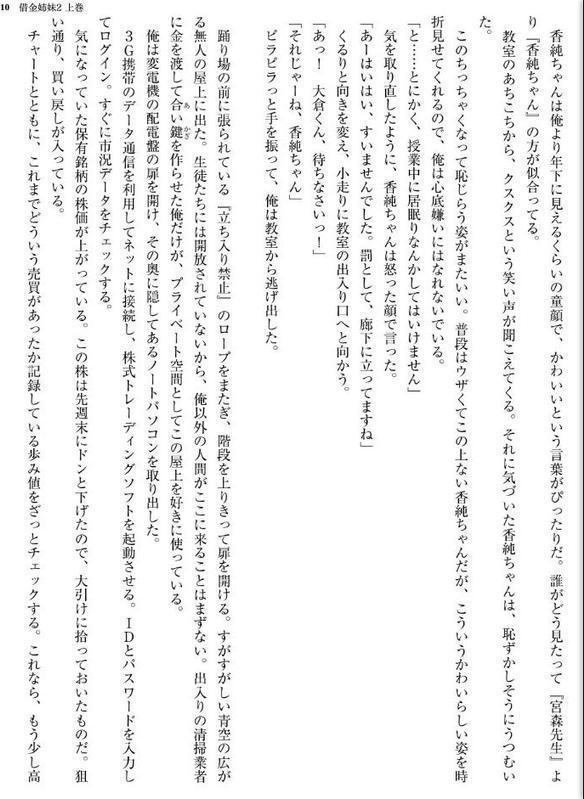 10　借金姉妹2 上巻
香純ちゃんは俺より年下に見えるくらいの童顔で、かわいいという言葉がぴったりだ。誰がどう見たって『宮森先生』よ
り『香純ちゃん』の方が似合ってる。
教室のあちこちから、クスクスという笑い声が聞こえてくる。それに気づいた香純ちゃんは、恥ずかしそうにうつむい
た。
このちっちゃくなって恥じらう姿がまたいい。普段はウザくてこの上ない香純ちゃんだが、こういうかわいらしい姿を時
折見せてくれるので、俺は心底嫌いにはなれないでいる。
「と……とにかく、授業中に居眠りなんかしてはいけません」
気を取り直したように、香純ちゃんは怒った顔で言った。
「あーはいはい、すいませんでした。罰として、廊下に立ってますね」
くるりと向きを変え、小走りに教室の出入り口へと向かう。
「あっ！　大倉くん、待ちなさいっ！」
「それじゃーね、香純ちゃん」
ピラピラっと手を振って、俺は教室から逃げ出した。
踊り場の前に張られている『立ち入り禁止』のロープをまたぎ、階段を上りきって扉を開ける。すがすがしい青空の広が
る無人の屋上に出た。生徒たちには開放されていないから、俺以外の人間がここに来ることはまずない。出入りの清掃業者
に金を渡して合い鍵を作らせた俺だけが、プライベート空間としてこの屋上を好きに使っている。
俺は変電機の配電盤の扉を開け、その奥に隠してあるノートパソコンを取り出した。
3G携帯のデータ通信を利用してネットに接続し、株式トレーディングソフトを起動させる。IDとパスワードを入力し
てログイン。すぐに市況データをチェックする。
気になっていた保有銘柄の株価が上がっている。この株は先週末にドンと下げたので、大引けに拾っておいたものだ。狙
い通り、買い戻しが入っている。
チャートとともに、これまでどういう売買があったか記録している歩み値をざっとチェックする。これなら、もう少し高